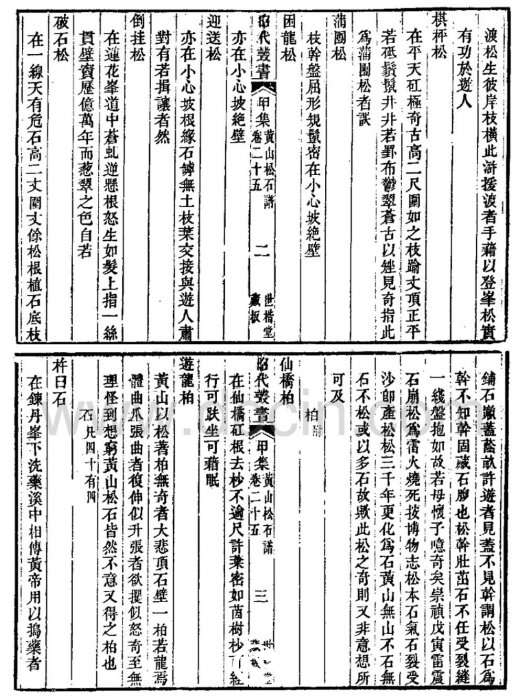 渡松生彼岸枝橫此澗援渡者手藉以登峯松實
有功於遊人
棋枰松
在平天矼極奇古高二尺圍如之枝踰丈頂正平
若砥鬃鬣井井若罫布鬱翠蒼古以矬見奇指此
爲蒲團松者誤
蒲團松
枝幹盤屈形規鬣密在小心坡絶壁
困龍松
亦在小心坡絶壁
昭代叢書 甲集 黃山松石譜 卷二十五 二 世楷堂 藏板
迎送松
亦在小心坡根緣石罅無土枝葉交接與遊人肅
對有若揖讓者然
倒挂松
在蓮花峯道中蒼虬逆懸根怒生如髮上指一絲
貫壁竇歷億萬年而葱翠之色自若
破石松
在一線天有危石高二丈闊丈餘松根植石底枝
鋪石巓蓋蔭畝許遊者見蓋不見幹謂松以石爲
幹不知幹固藏石腹也松幹壯茁石不任受裂縫
一綫盤抱如故若母懷子噫奇矣崇禎戊寅雷震
石崩松爲雷火燒死按博物志松本石氣石裂受
沙卽產松松三千年更化爲石黃山無山不石無
石不松或以多石故歟此松之奇則又非意想所
可及
柏譜
仙橋柏
昭代叢書 甲集 黃山松石譜 卷二十五 三
在仙橋矼根去杪不逾尺許葉密如茵樹杪了經
行可趺坐可藉眠
遊龍柏
黃山以松著柏無奇者大悲頂石壁一柏若龍焉
體曲爪張曲者復伸似升張者欲攫似怒奇至無
理怪到想窮黃山松石皆然不意又得之柏也
石凡四十有四
杵臼石
在鍊丹峯下洗藥溪中相傳黃帝用以搗藥者